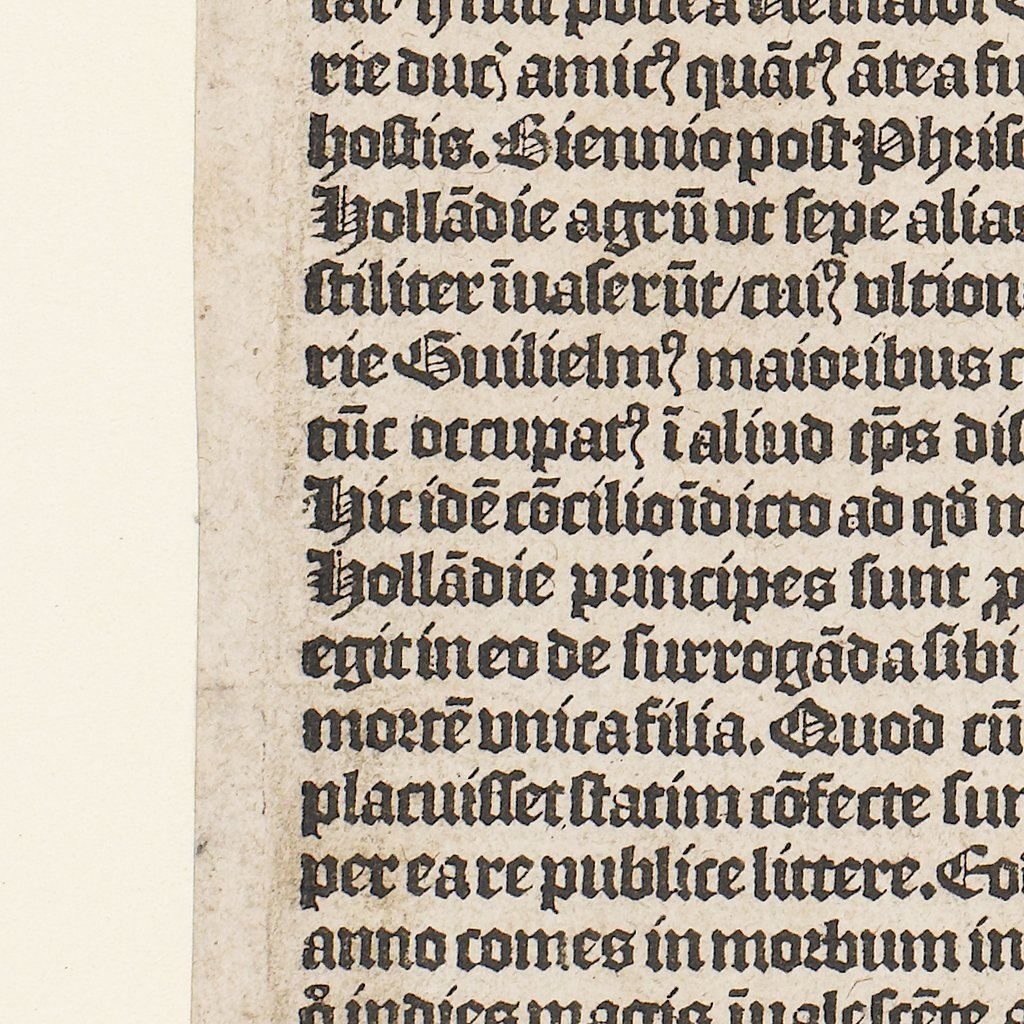 rie ducꝭ amicꝰ quātꝰ ātea fu
hostis. Biennio post Phris
Hollādie agrū vt sepe alias
stiliter īuaserūt/cuiꝰ vltion
rie Guilielmꝰ maioribus c
tūc occupatꝰ ī aliud tp̄s dis
Hic idē cōcilio īdicto ad qđ n
Hollādie principes sunt ꝓ
egit in eo de surrogāda sibi
mortē vnica filia. Quod cū
placuisset statim cōfecte sur
per ea re publice littere. Eo
anno comes in morbum in
indies magis īualescēte